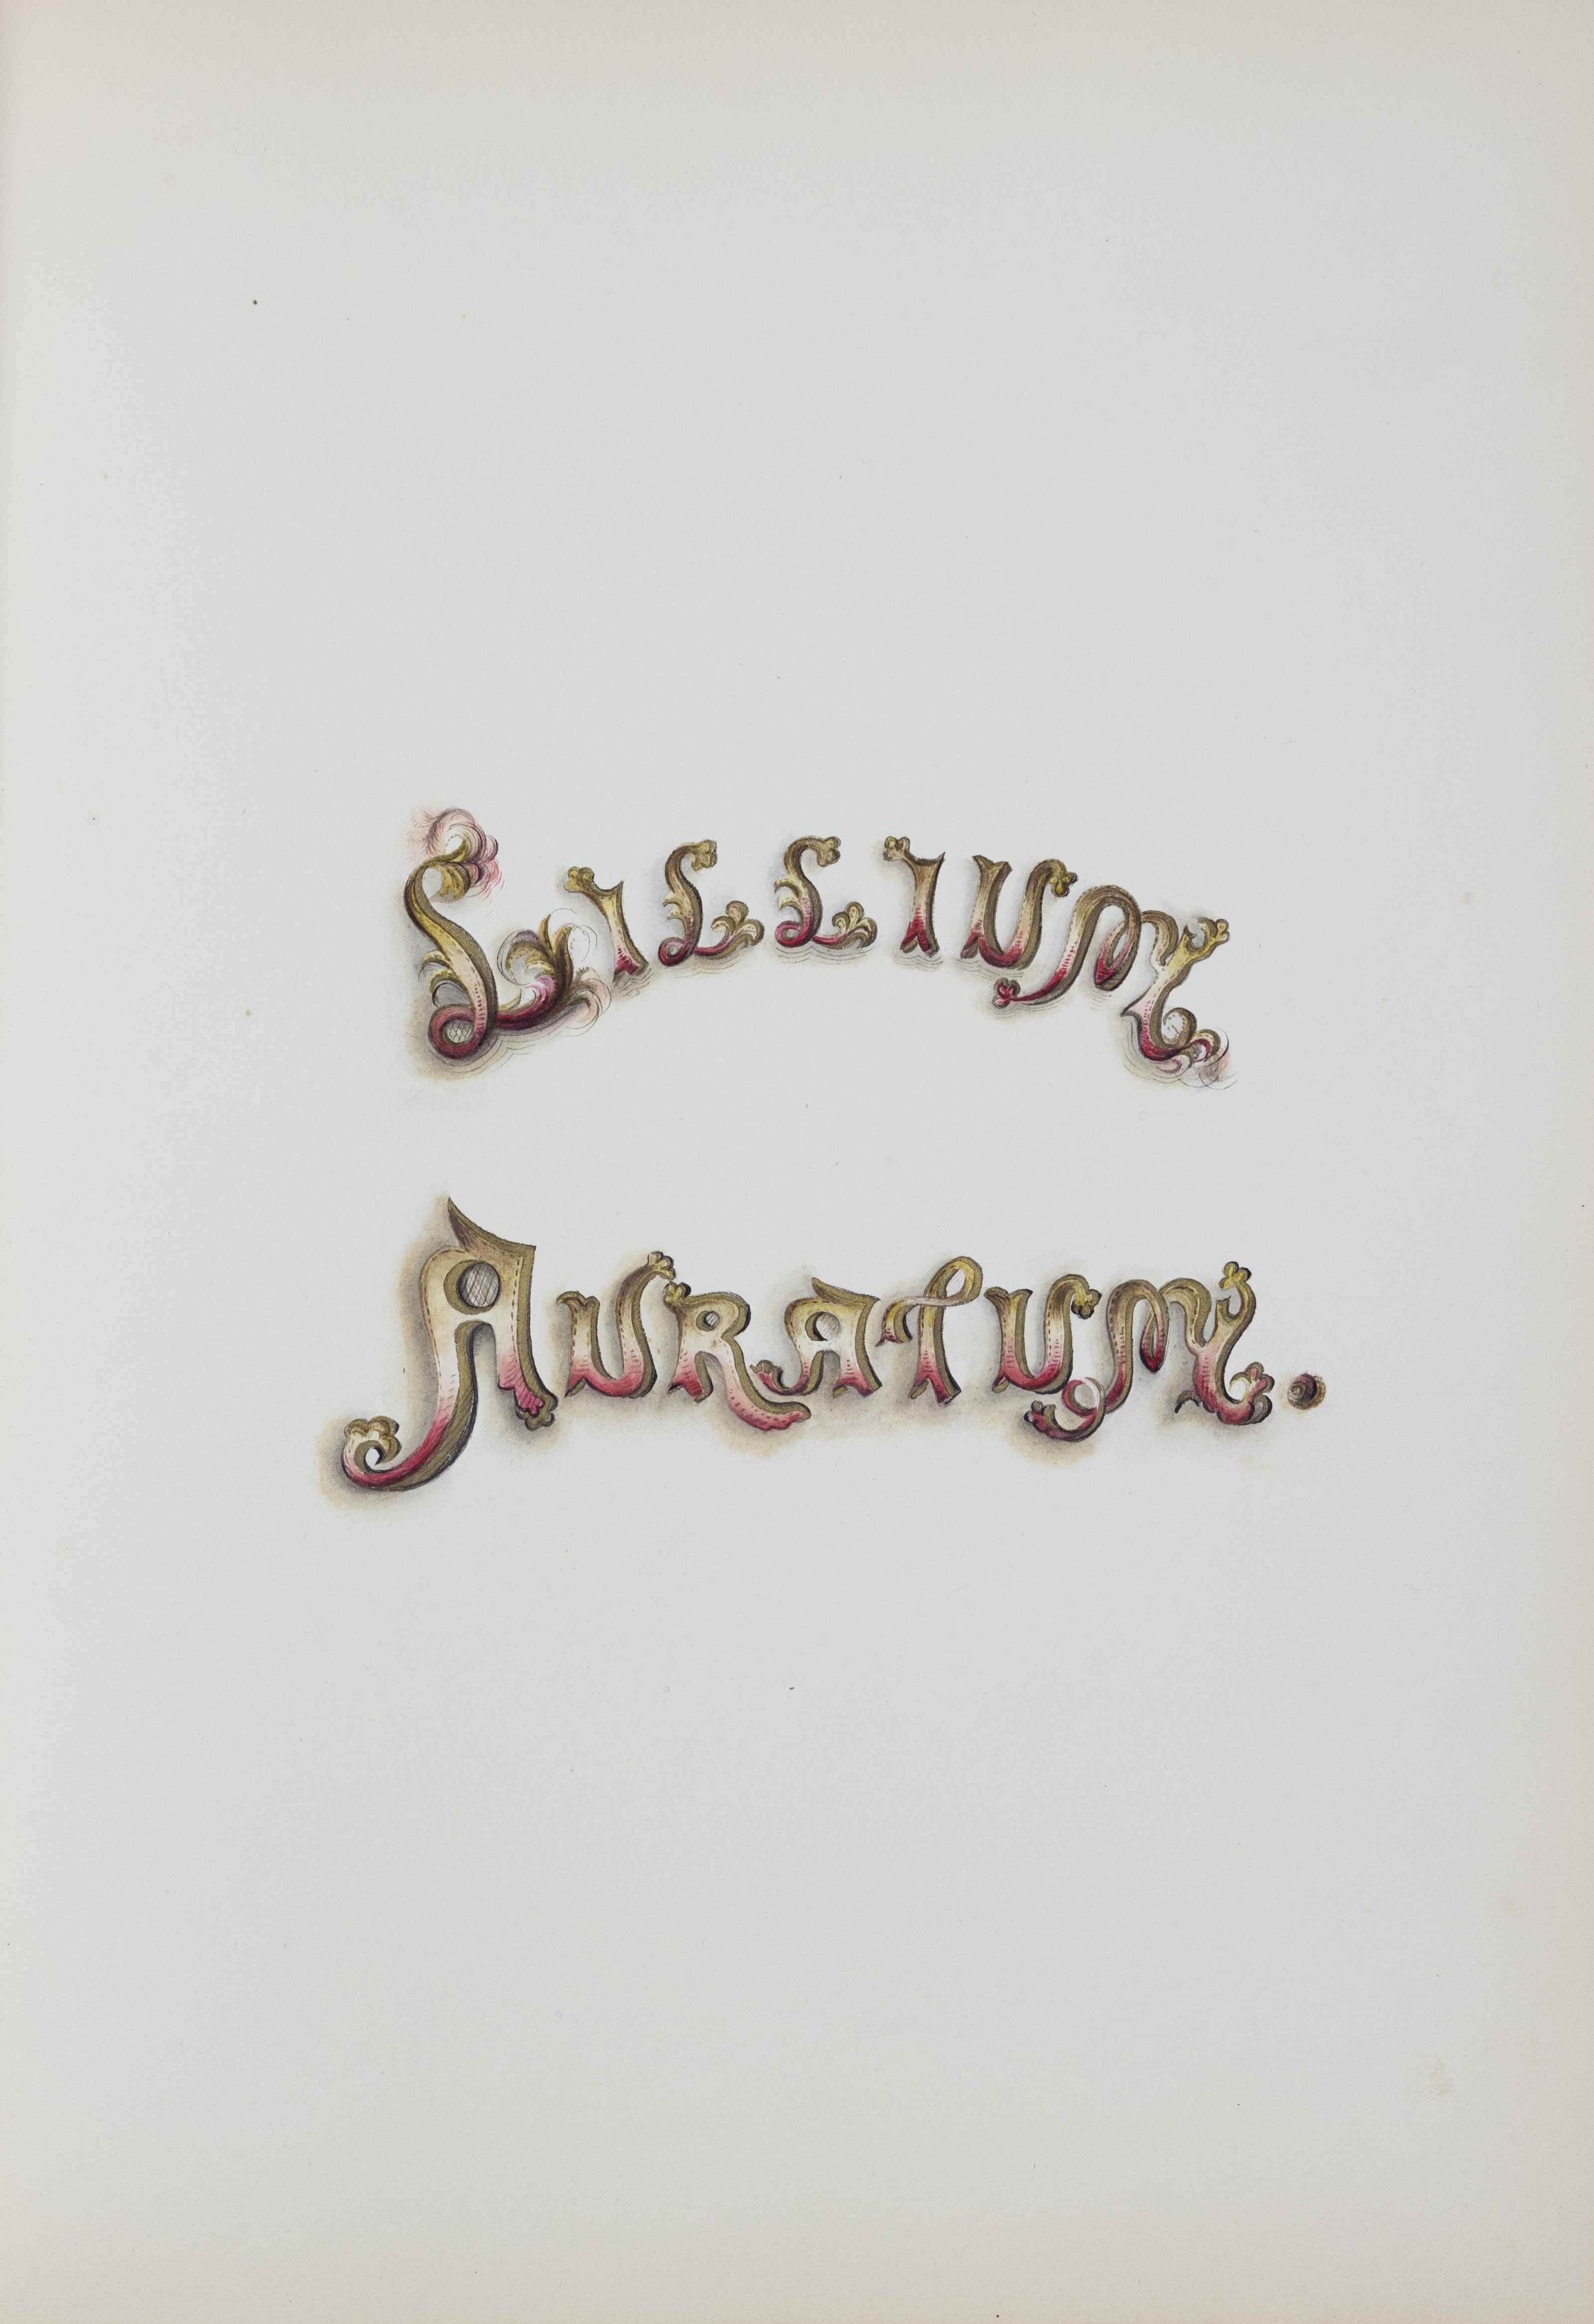 LILLIUM
AURATUM.